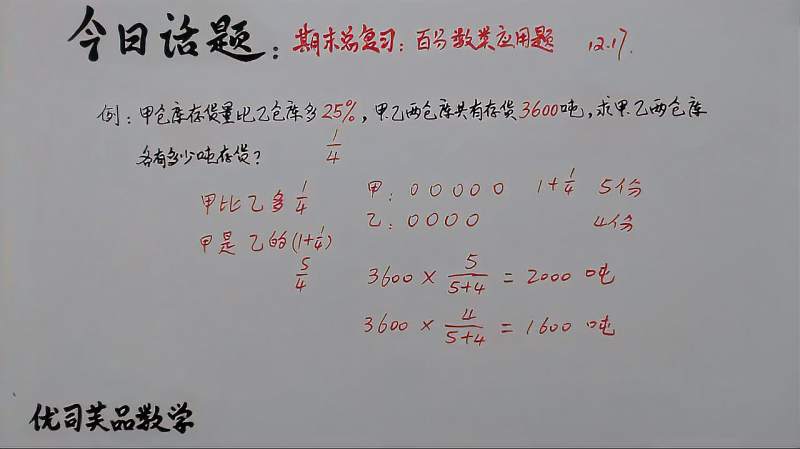 今日话题：期末总复习：百分数类应用题 12.17.
例：甲仓库存货量比乙仓库多25%，甲.乙两仓库共有存货3600吨，求甲.乙两仓库
1/4
各有多少吨存货？
甲比乙多 1/4 甲：0 0 0 0 0 1+1/4 5份
乙：0 0 0 0 4份
甲是乙的(1+1/4)
5/4
3600 × 5/(5+4) = 2000 吨
3600 × 4/(5+4) = 1600 吨
优司芙品数学